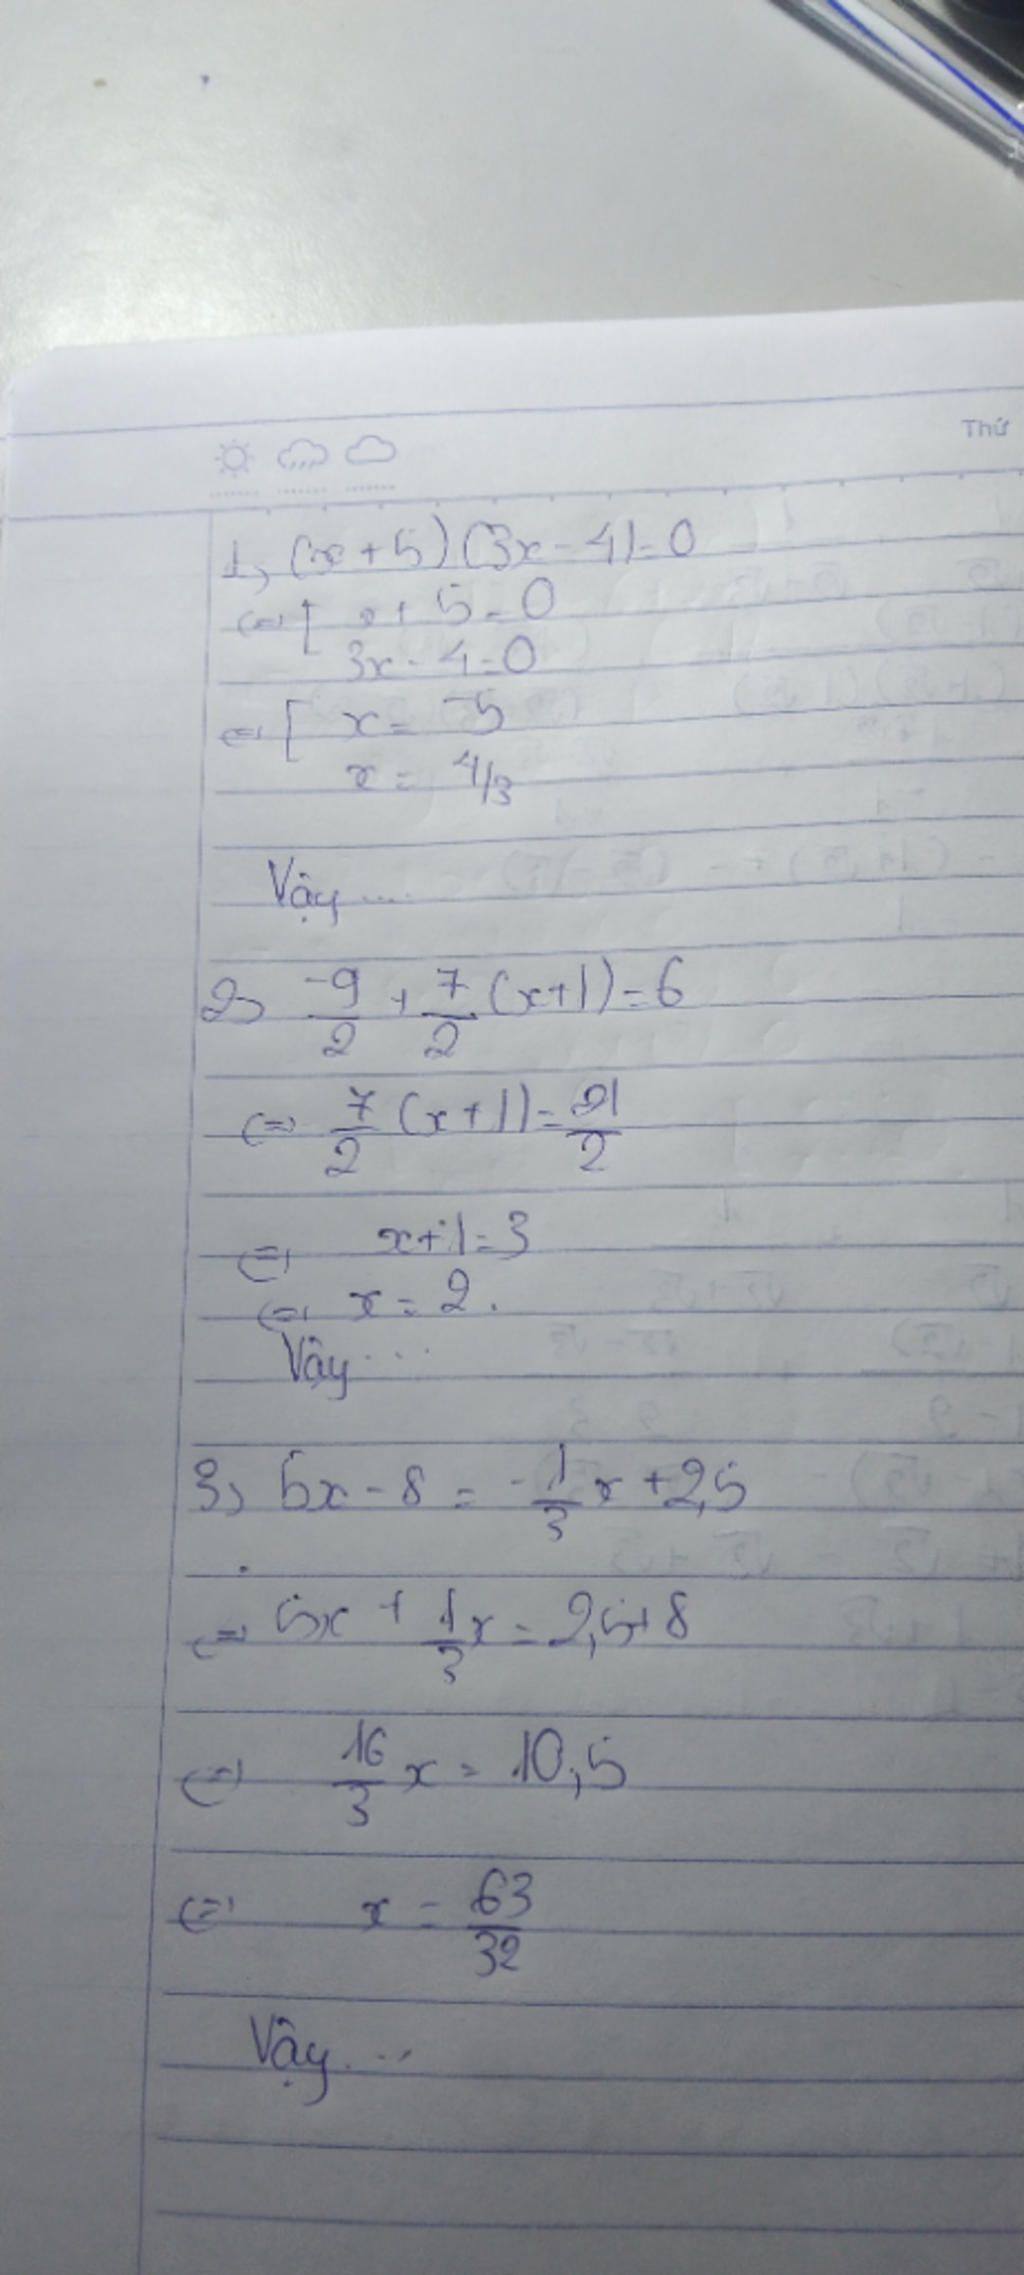 Thứ
1, (x+5)(3x-4)=0
<=> [ x+5=0
3x-4=0
<=> [ x= -5
x= 4/3
Vậy....
2, -9/2 + 7/2 (x+1)=6
<=> 7/2 (x+1)= 21/2
<=> x+1=3
<=> x=2.
Vậy...
3, 5x-8 = -1/3 x+2,5
<=> 5x + 1/3 x = 2,5+8
<=> 16/3 x = 10,5
<=> x = 63/32
Vậy...